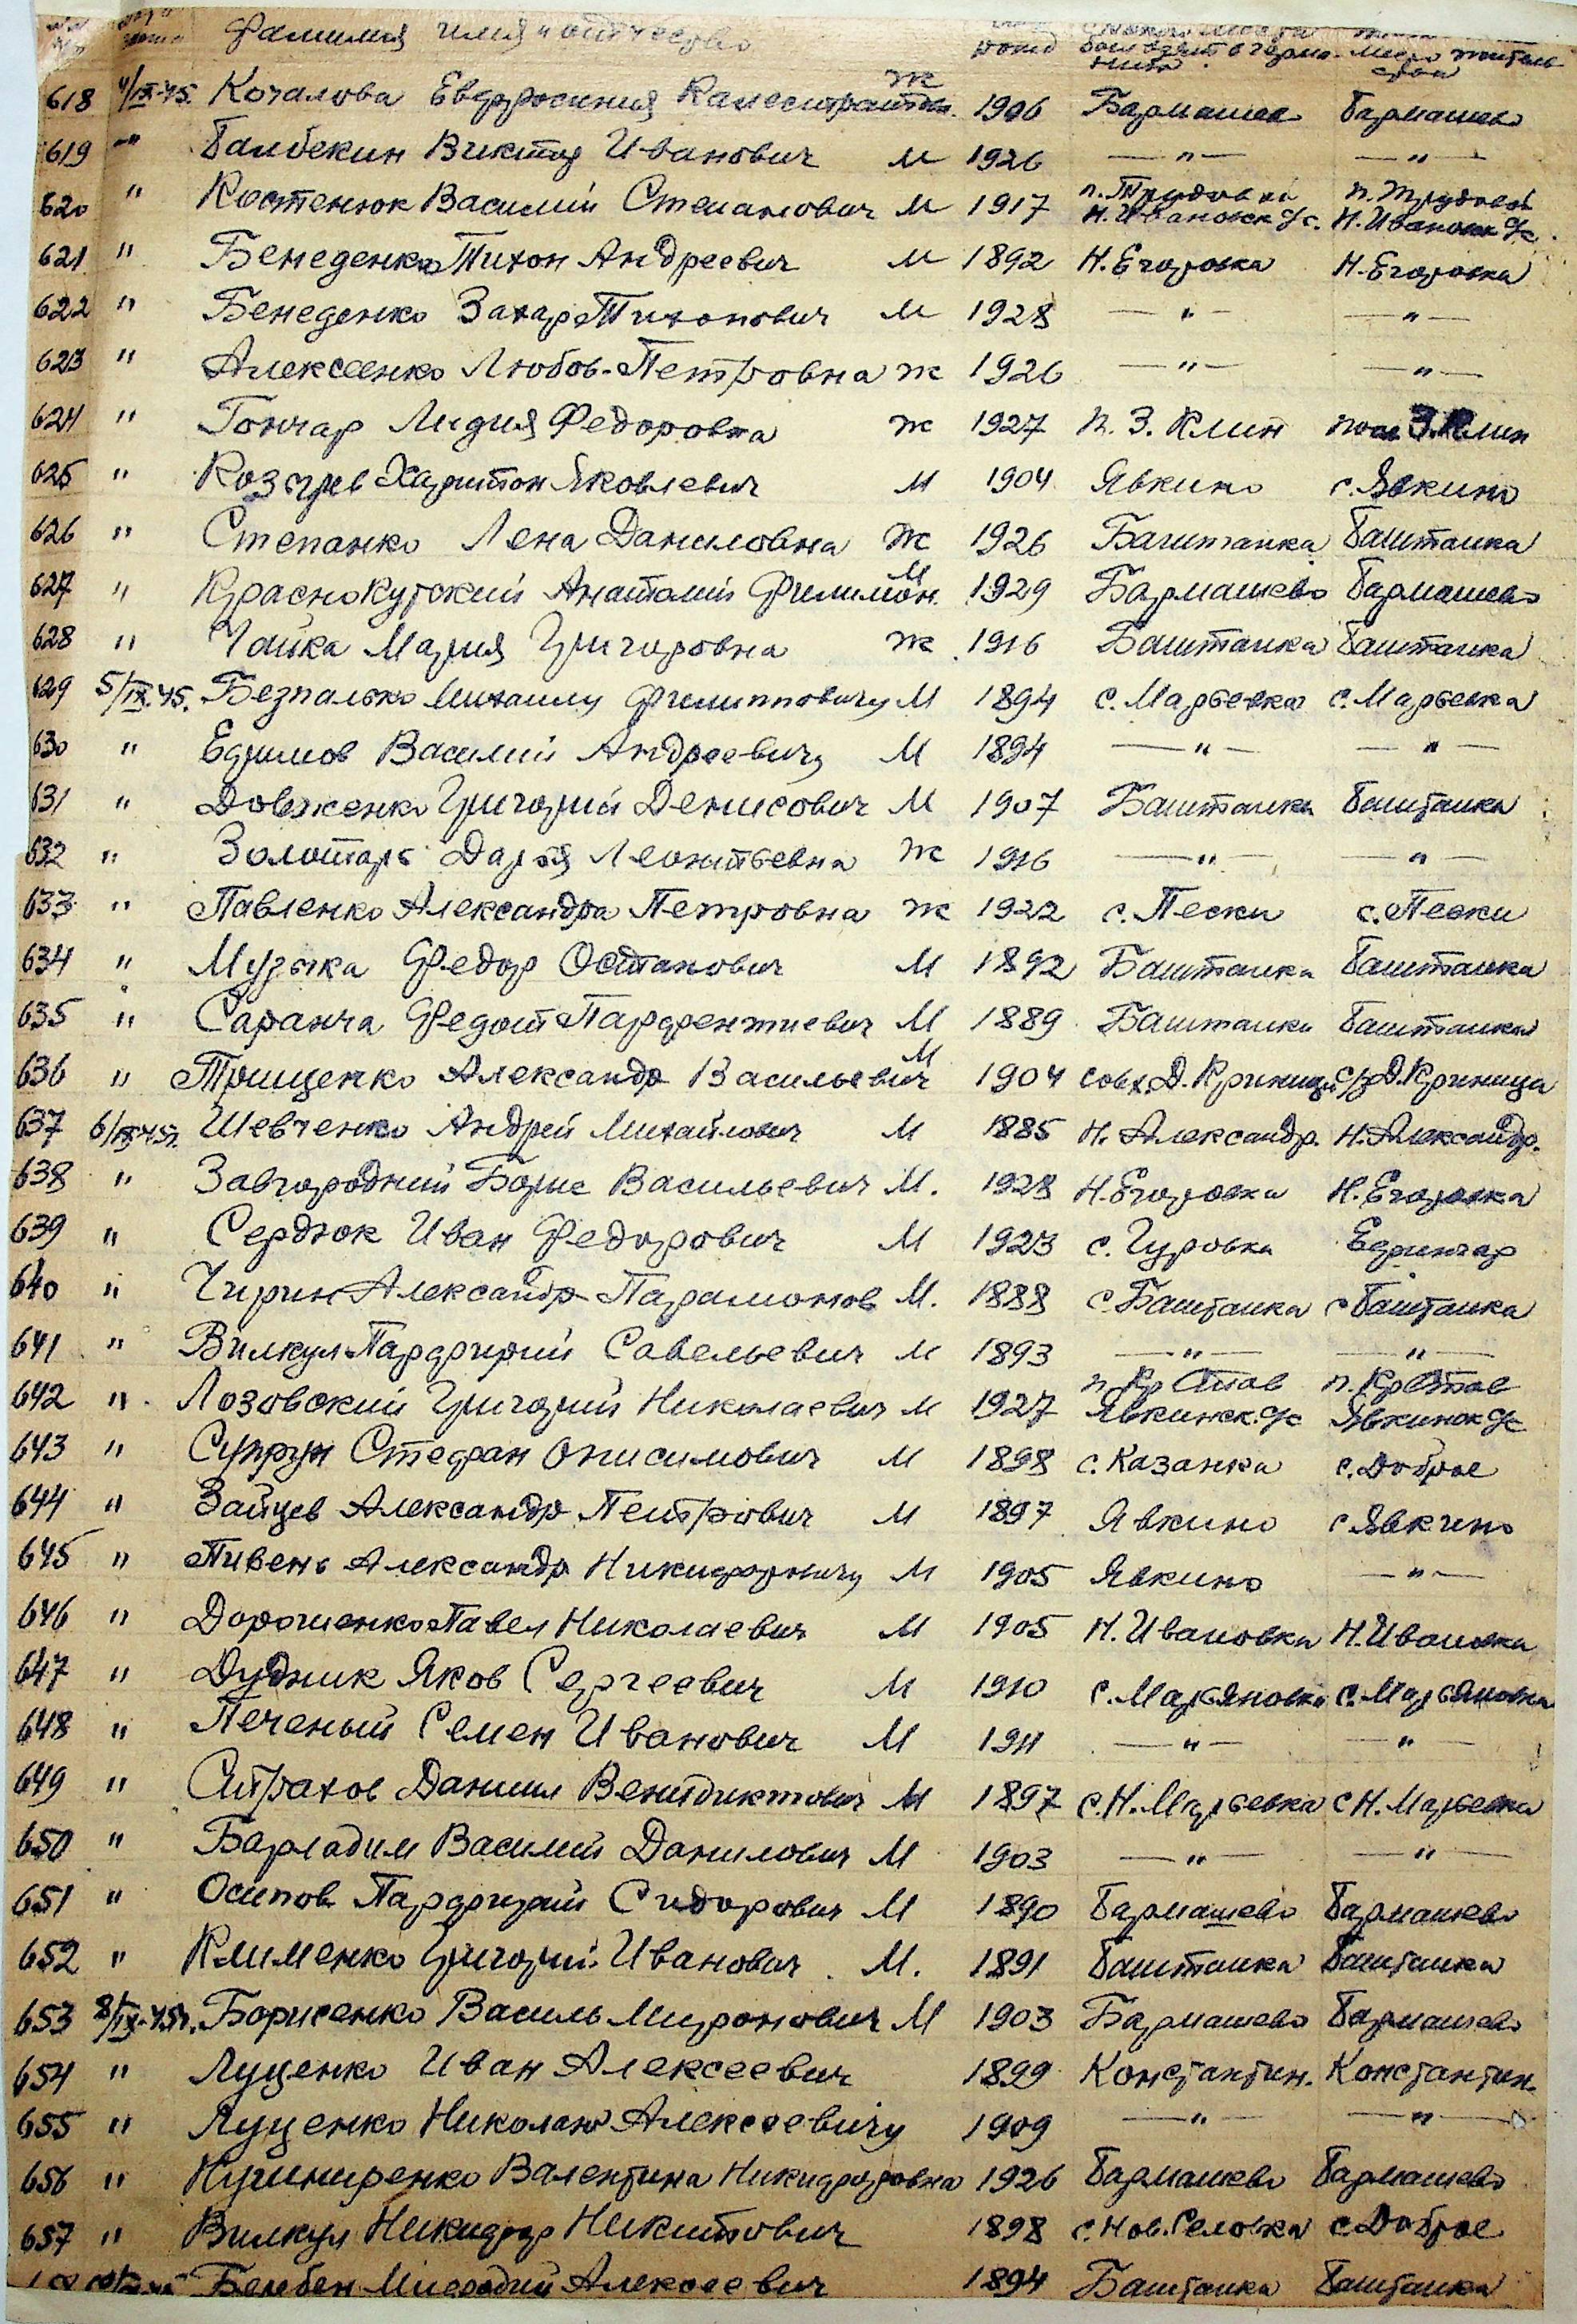 Фамилия имя и отчество рожд был взят в герма- место житель
нию ства
618 4/IX-45. Кочалова Евдросиния Калистратовн. Ж 1906 Бармашев Бармашево
619 -"- Балбекин Виктор Иванович М 1926 —"— —"—
620 " Костенюк Василий Степанович М 1917 п. Трудовка Н. Ивановск с/с. п. Трудовой Н. Ивановск с/с.
621 " Бенеденко Тихон Андреевич М 1892 Н. Егоровка Н-Егоровка
622 " Бенеденко Захар Тихонович М 1928 —"— —"—
623 " Алексеенко Любов-Петровна Ж 1926 —"— —"—
624 " Гончар Лидия Федоровна Ж 1927 п. З. Клин пос З. Клин
625 " Козырев Харитон Яковлевич М 1904 Явкино с. Явкино
626 " Степанко Лена Даниловна Ж 1926 Баштанка Баштанка
627 " Краснокутский Анатолий Филимон. М 1929 Бармашево Бармашево
628 " Чайка Мария Григоровна Ж 1916 Баштанка Баштанка
629 5/IX.45. Безпалько Михаилу Филипповичу М 1894 с. Марьевка с. Марьевка
630 " Ефимов Василий Андреевичу М 1894 —"— —"—
631 " Довженко Григорий Денисович М 1907 Баштанка Баштанка
632 " Золотарь Дарья Леонтьевна Ж 1916 —"— —"—
633 " Павленко Александра Петровна Ж 1922 с. Пески с. Пески
634 " Музыка Федор Остапович М 1892 Баштанка Баштанка
635 " Саранча Федот Парфентиевич М 1889 Баштанка Баштанка
636 " Трищенко Александр Васильевич М 1904 совх. Д. Криница с/з Д. Криница
637 6/IX-45г. Шевченко Андрей Михайлович М 1885 Н. Александр. Н. Александр.
638 " Завгородний Борис Васильевич М. 1928 Н. Егоровка Н. Егоровка
639 " Сердюк Иван Федорович М 1923 с. Гуровка Ефингар
640 " Чирин Александр Парамонов М. 1888 с. Баштанка с Баштанка
641 " Вилкул Парфирий Савельевич М 1893 —"— —"—
642 " Лозовский Григорий Николаевич М 1927 п. Кр Став Явкинск. с/с п. Кр Став Явкинск с/с
643 " Супрун Стефан Онисимович М 1898 с. Казанка с. Доброе
644 " Зайцев Александр Петрович М 1897 Явкино с Явкино
645 " Пивень Александр Никифоричу М 1905 Явкино —"—
646 " Дорошенко Павел Николаевич М 1905 Н. Ивановка Н. Ивановка
647 " Дудник Яков Сергеевич М 1910 с. Марьяновка с. Марьяновка
648 " Печеный Семен Иванович М 1911 —"— —"—
649 " Страхов Даниил Венидиктович М 1897 с. Н. Марьевка с Н. Марьевка
650 " Барладим Василий Данилович М 1903 —"— —"—
651 " Осипов Парфирий Сидорович М 1890 Бармашево Бармашево
652 " Клименко Григорий Иванович М. 1891 Баштанка Баштанка
653 8/IX-45г. Борисенко Василь Миронович М 1903 Бармашево Бармашево
654 " Луценко Иван Алексеевич 1899 Константин. Константин.
655 " Луценко Николай Алексеевичу 1909 —"— —"—
656 " Кушниренко Валентина Никифоровна 1926 Бармашево Бармашево
657 " Вилкул Никифор Никитович 1898 с. Нов. Селовка с Доброе
Бембен Мифодий Алексеевич 1894 Баштанка Баштанка